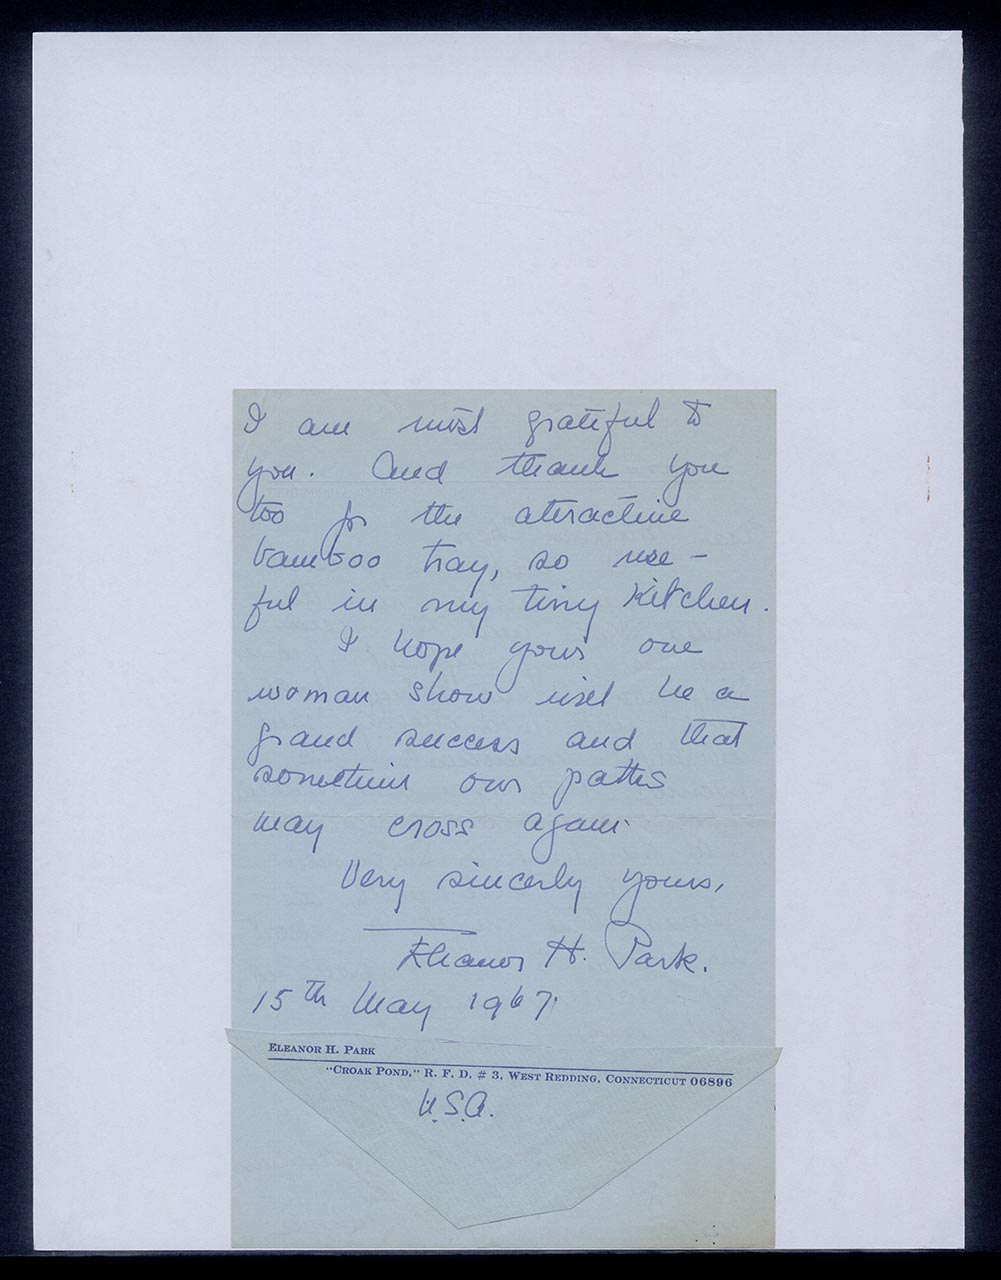 I am most grateful to
you. And thank you
too for the attractive
bamboo tray, so use-
ful in my tiny Kitchen.
I hope your one
woman show will be a
grand success and that
sometime our paths
may cross again.
Very sincerely yours,
Eleanor H. Park.
15th May 1967.
ELEANOR H. PARK
"CROAK POND," R. F. D. # 3, WEST REDDING, CONNECTICUT 06896
U.S.A.